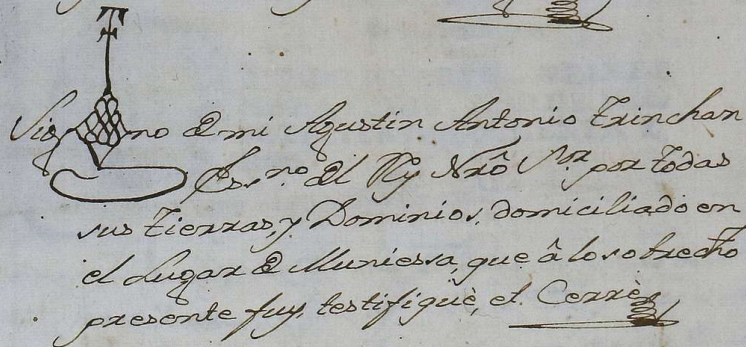 Sig no de mi Agustin Antonio Trinchan
Ess.no del Rey Nrô S.or por todas
sus tierras, y Dominios, domiciliado en
el Lugar de Muniessa, que â lo sobredho
presente fuy, testifiquè, et Cerrè